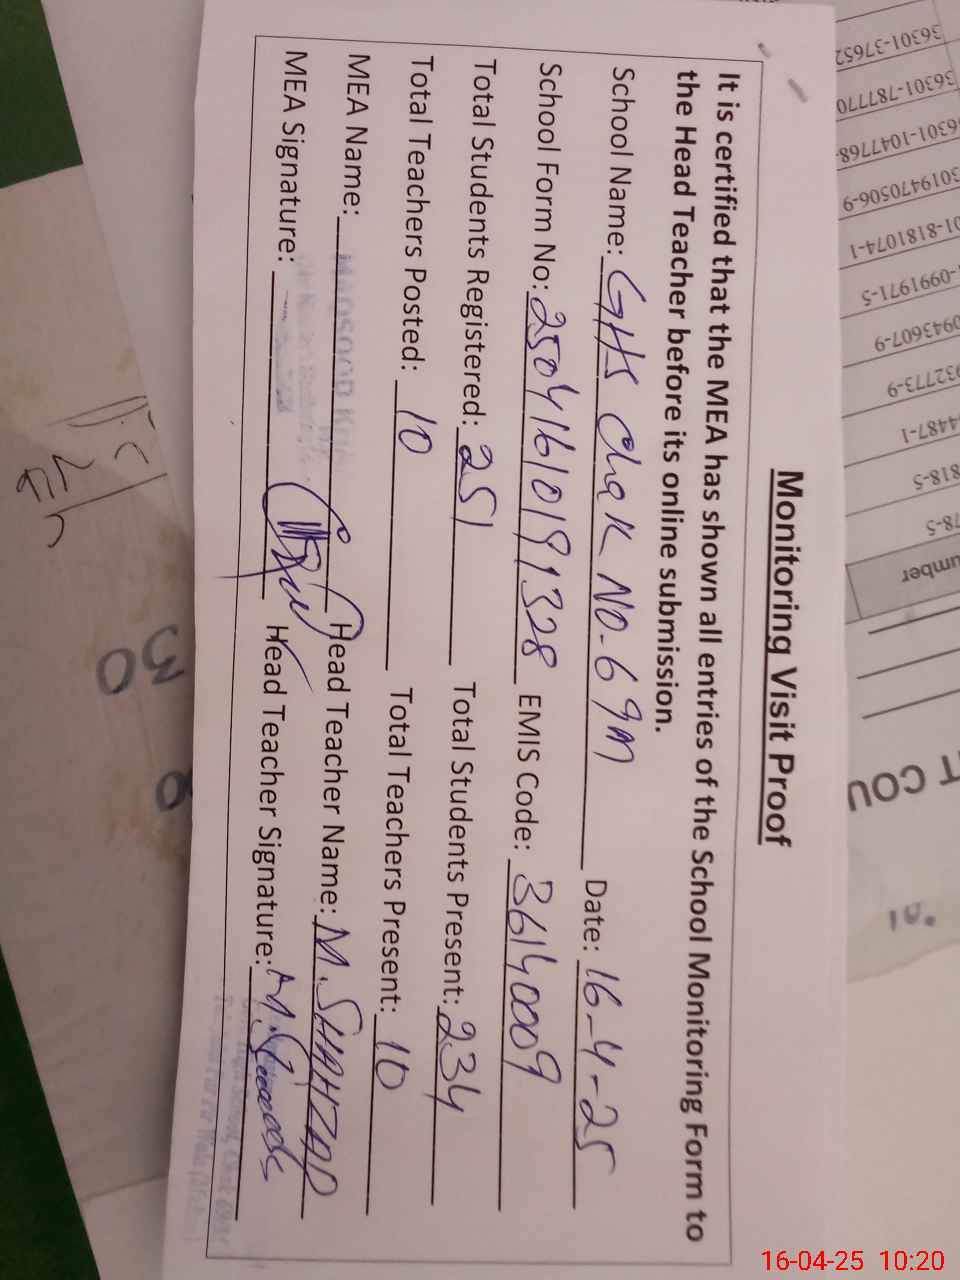 Monitoring Visit Proof
It is certified that the MEA has shown all entries of the School Monitoring Form to
the Head Teacher before its online submission.
School Name: GHS Chak No. 69M Date: 16-4-25
School Form No: 25041610191328 EMIS Code: 36140009
Total Students Registered: 251 Total Students Present: 234
Total Teachers Posted: 10 Total Teachers Present: 10
MEA Name: MAQSOOD Head Teacher Name: M. SHAHZAD
MEA Signature: Head Teacher Signature: M.S
36301-37652
36301-787770
6301-1047768-
3019470506-9
01-8181074-1
-0991971-5
0943607-9
932773-9
44487-1
818-5
78-5
umber
T COU
30
16-04-25 10:20